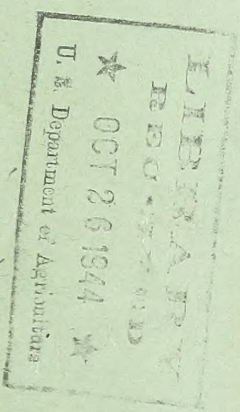 LIBRARY
RECEIVED
★ OCT 26 1944 ★
U. S. Department of Agriculture